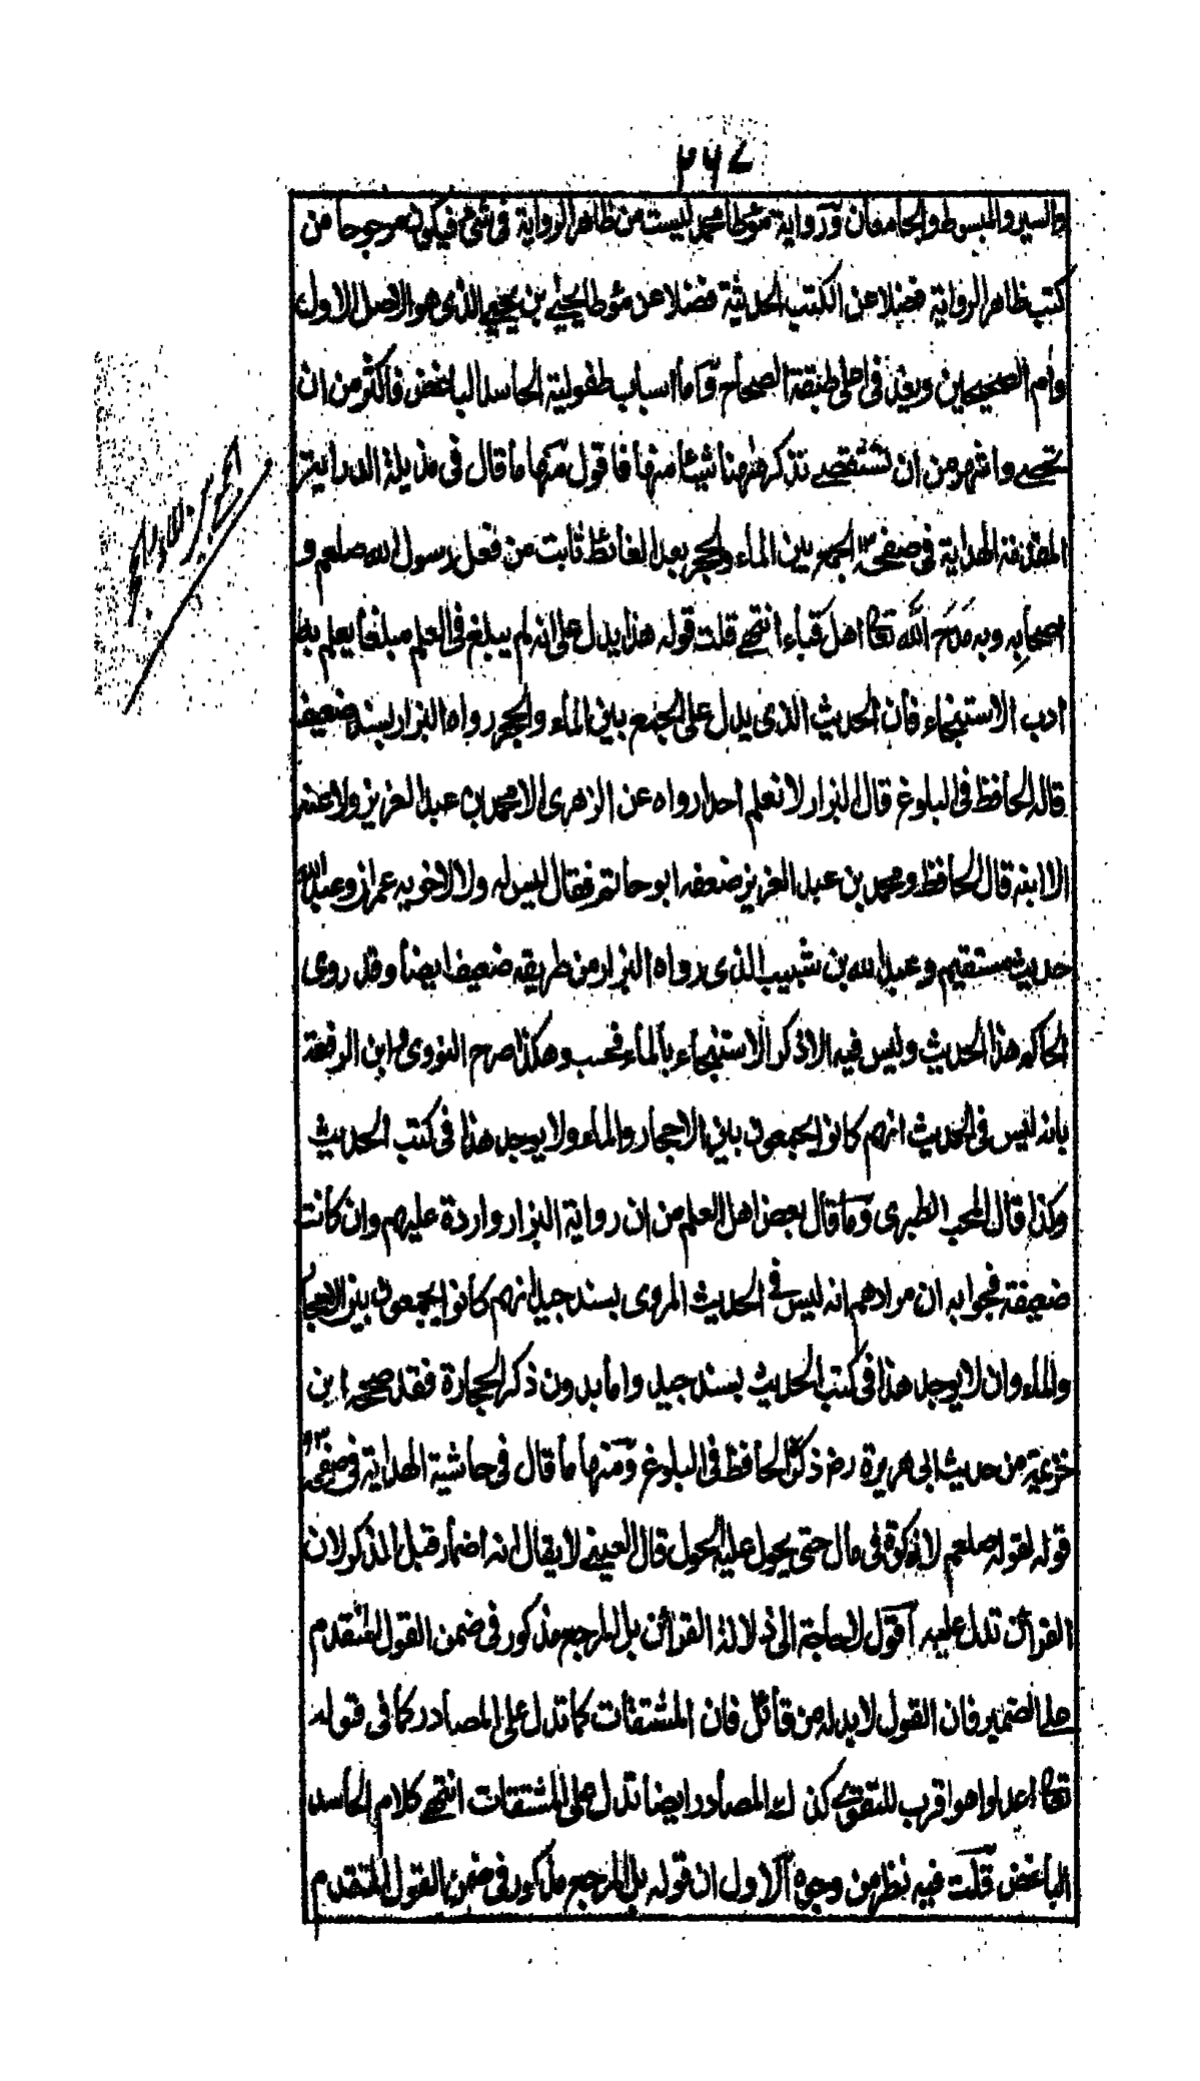 ٢٦٧
والسير والمبسوط والجامعان ورواية مؤطا محمد ليست من ظاهر الرواية في شئ فيكون مرجوحا من
كتب ظاهر الرواية فضلا عن الكتب الحديثية فضلا عن مؤطا يحيى بن يحيى الذى هو الاصل الاول
وام الصحيحين ويعد في اعلى طبقة الصحاح وآما اسباب طفولية الحاسد الباغض فاكثر من ان
تحصے واشهر من ان تستقصے نذكر ههنا شيئا منها فاقول منها ما قال في مذيلة الدراية
لمقدمة الهداية في صفحه ١٣ الجمع بين الماء والحجر بعد الغائط ثابت من فعل رسول الله صلعم و
اصحابه وبه مَدَحَ الله تعالى اهل قباء انتهے قلت قوله هذا يدل على انه لم يبلغ في العلم مبلغا يعلم به
ادب الاستنجاء فان الحديث الذى يدل على الجمع بين الماء والحجر رواه البزار بسند ضعيف
قاله الحافظ في البلوغ قال البزار لا نعلم احدا رواه عن الزهرى الا محمد بن عبد العزيز ولا عنه
الا ابنه قال الحافظ ومحمد بن عبد العزيز ضعفه ابو حاتم فقال ليس له ولا لاخويه عمران وعبد الله
حديث مستقيم وعبد الله بن شبيب الذى رواه البزار من طريقه ضعيف ايضا وقد روى
الحاكم هذا الحديث وليس فيه الا ذكر الاستنجاء بالماء فحسب وهكذا صرح النووى وابن الرفعة
بانه ليس في الحديث انهم كانوا يجمعون بين الاحجار والماء ولا يوجد هذا في كتب الحديث
وكذا قال المحب الطبرى وما قال بعض اهل العلم من ان رواية البزار واردة عليهم وان كانت
ضعيفة فجوابه ان مرادهم انه ليس في الحديث المروى بسند جيد انهم كانوا يجمعون بين الاحجار
والماء وان لا يوجد هذا في كتب الحديث بسند جيد واما بدون ذكر الحجارة فقد صححه ابن
خزيمة من حديث ابى هريرة رض ذكره الحافظ في البلوغ ومنها ما قال في حاشية الهداية في صفحه
قوله لقوله صلعم لا زكوة في مال حتى يحول عليه الحول قال العينے لا يقال انه اضمار قبل الذكر لان
القرائن تدل عليه اقول لا حاجة الى دلالة القرائن بل المرجع مذكور في ضمن القول المتقدم
على الضمير فان القول لابد له من قائل فان المشتقات كما تدل على المصادر كما في قوله
تعالى اعدلوا هو اقرب للتقوى كذلك المصادر ايضا تدل على المشتقات انتهے كلام الحاسد
الباغض قلت فيه نظر من وجوه الاول ان قوله بل المرجع مذكور في ضمن القول المتقدم